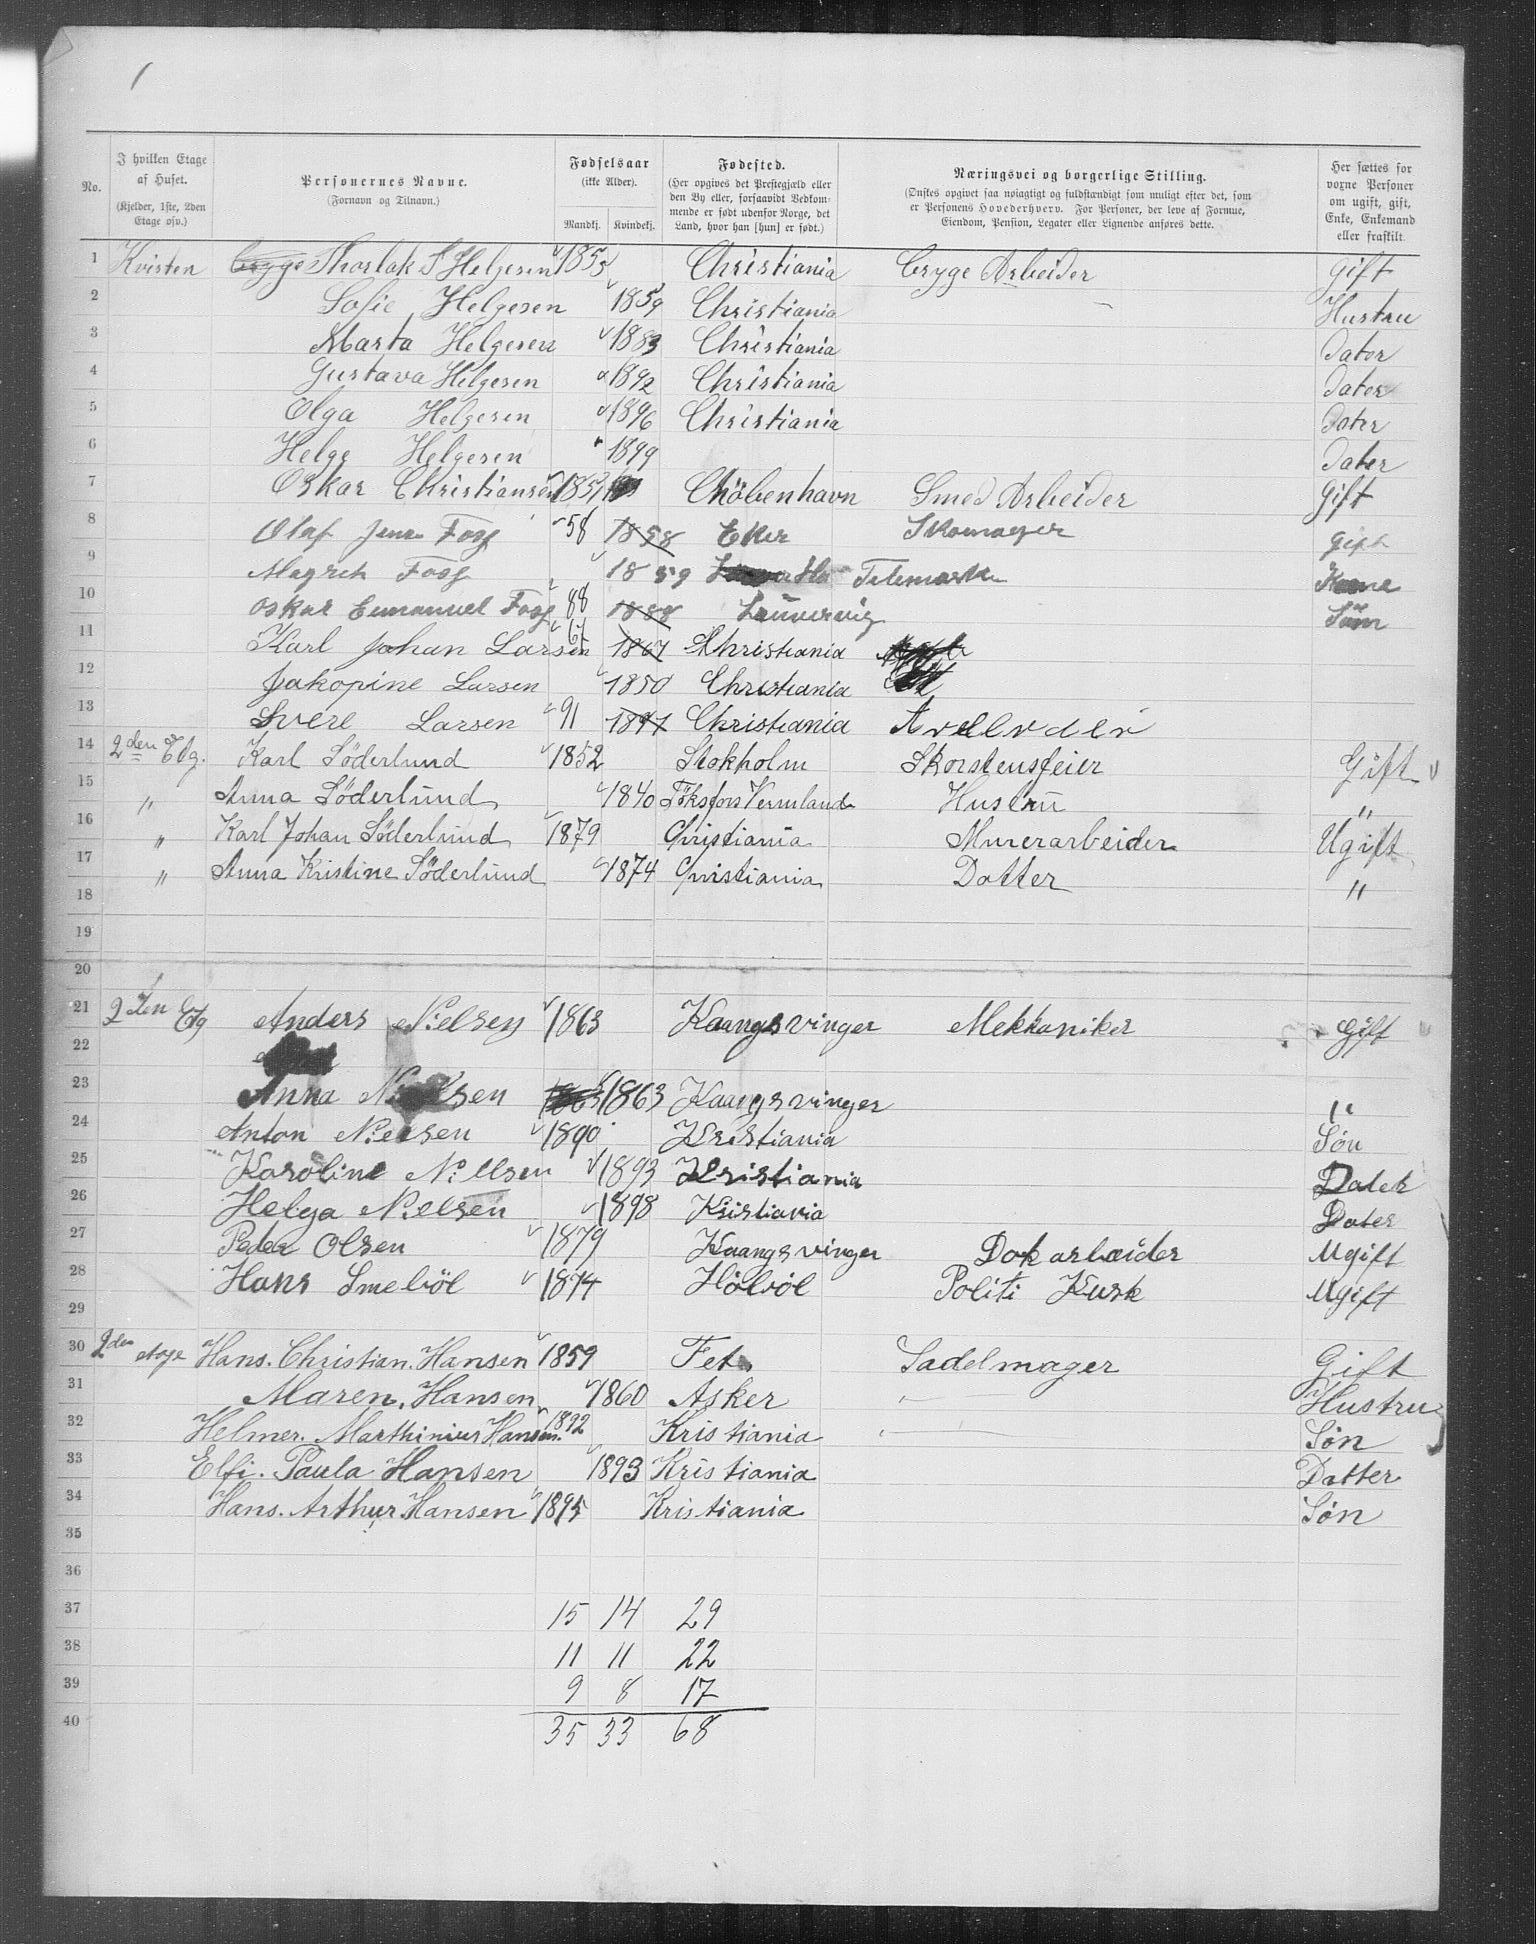 1
No. I hvilken Etage af Huset. (Kjelder, 1ste, 2den Etage osv.) Personernes Navne. (Fornavn og Tilnavn.) Fødselsaar (ikke Alder). Mandkj. Kvindekj. Fødested. (Her opgives det Prestegjæld eller den By eller, forsaavidt Vedkommende er født udenfor Norge, det Land, hvor han [hun] er født.) Næringsvei og borgerlige Stilling. (Ønskes opgivet saa nøiagtigt og fuldstændigt som muligt efter det, som er Personens Hovederhverv. For Personer, der leve af Formue, Eiendom, Pension, Legater eller Lignende anføres dette. Her sættes for voxne Personer om ugift, gift, Enke, Enkemand eller fraskilt.
1 Kvisten Brygge Thorlak S Helgesen 1855 Christiania Brygge Arbeider gift
2 Sofie Helgesen 1859 Christiania Hustru
3 Marta Helgesen 1883 Christiania Dater
4 Gustava Helgesen 1892 Christiania Dater
5 Olga Helgesen 1896 Christiania Dater
6 Helge Helgesen 1899 Dater
7 Oskar Christiansen 1851 Chöbenhavn Smed Arbeider Gift
8 Olaf Jens Fosg 58 1858 Eker Skomager gift
9 Magreth Fosg 1859 Telemarken Kone
10 Oskar Emanuel Fosg 88 1888 Laurvig Sön
11 Karl Johan Larsen 67 1867 Christiania
12 Jakopine Larsen 1850 Christiania
13 Svere Larsen 91 1891 Christiania
14 2den Etg. Karl Söderlund 1852 Stokholm Skorstensfeier Gift
15 " Anna Söderlund 1840 Töksfors Vermland Hustru "
16 " Karl Johan Söderlund 1879 Christiania Murerarbeider Ugift
17 " Anna Kristine Söderlund 1874 Christiania Datter "
18
19
20
21 2den Etg Anders Nielsen 1863 Kaangsvinger Mekkaniker gift
22
23 Anna Nielsen 1863 1863 Kaangsvinger "
24 Anton Nielsen 1890 Kristiania Søn
25 Karoline Nillsen 1893 Kristiania Dater
26 Helga Nielsen 1898 Kristiania Dater
27 Peder Olsen 1879 Kaangsvinger Dokarbeider Ugift
28 Hans Smeböl 1874 Hölböl Politi Kusk Ugift
29
30 2den etage Hans. Christian. Hansen 1859 Fet Sadelmager Gift
31 Maren. Hansen 1860 Asker Hustru
32 Helmer. Marthinius Hansen. 1892 Kristiania Søn
33 Elfi. Paula Hansen 1893 Kristiania Datter
34 Hans. Arthur. Hansen 1895 Kristiania Søn
35
36
37 15 14 29
38 11 11 22
39 9 8 17
40 35 33 68